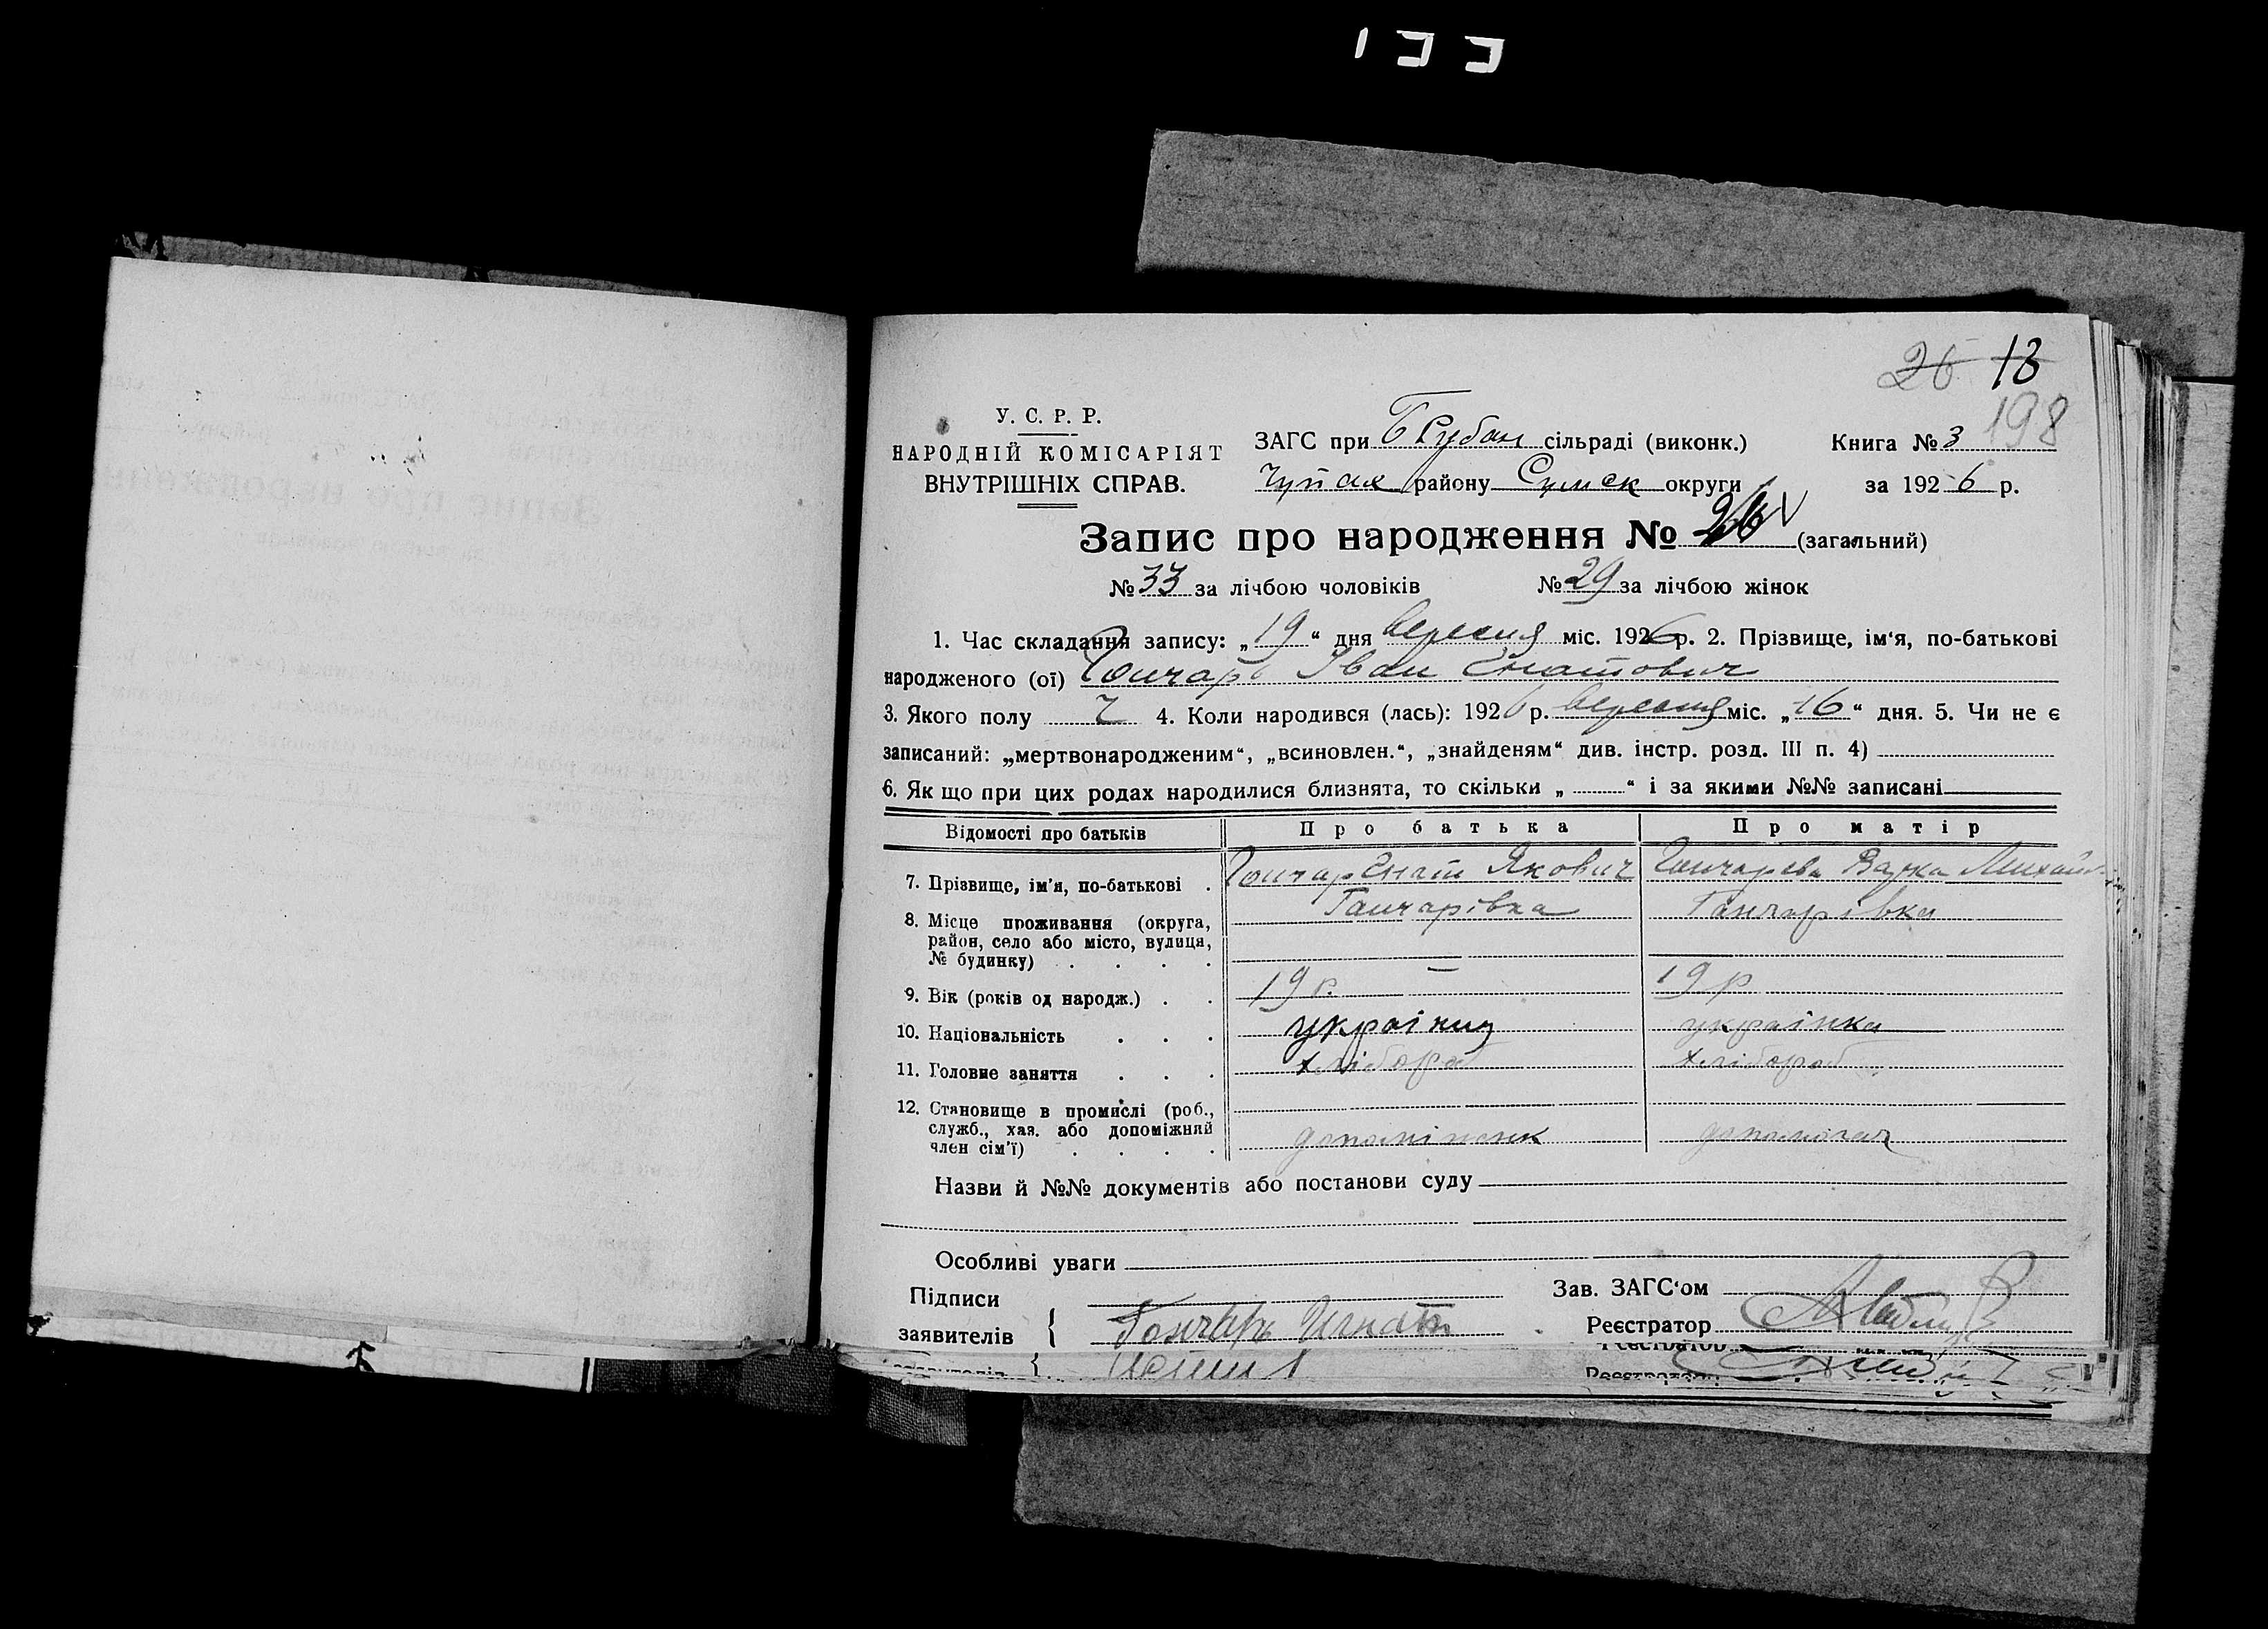 133
26 13
198
У. С. Р. Р.
НАРОДНІЙ КОМІСАРІЯТ
ВНУТРІШНІХ СПРАВ.
ЗАГС при Б Рубан сільраді (виконк.) Книга № 3
Чупах району Сумск округи за 1926 р.
Запис про народження № (загальний)
№ 33 за лічбою чоловіків № 29 за лічбою жінок
1. Час складання запису: „19“ дня вересня міс. 1926 р. 2. Прізвище, ім'я, по-батькові
народженого (ої) Гончарь Іван Гнатович
3. Якого полу ч 4. Коли народився (лась): 1926 р. вересня міс. „16“ дня. 5. Чи не є
записаний: „мертвонародженим“, „всиновлен.“, „знайденям“ див. інстр. розд. III п. 4)
6. Як що при цих родах народилися близнята, то скільки „ “ і за якими №№ записані
Відомості про батьків Про батька Про матір
7. Прізвище, ім'я, по-батькові . Гончар Гнат Якович Гончарева Варка Михайл
8. Місце проживання (округа, Гончарівка Гончарівка
район, село або місто, вулиця,
№ будинку) . . . .
9. Вік (років од народж.) . . 19 р. 19 р
10. Національність . . . українц українка
11. Головне заняття . . . хлібороб хлібороб
12. Становище в промислі (роб.,
служб., хаз. або допоміжний
член сім'ї) . . . . допоміжник допомогач
Назви й №№ документів або постанови суду
Особливі уваги
Підписи Зав. ЗАГС'ом
заявителів { Гончарь Игнат Реєстратор
Реєстратор
Реєстратор